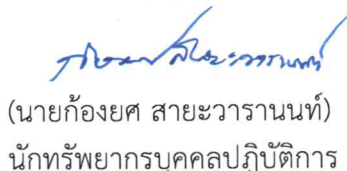 (นายก้องยศ สายะวารานนท์)
นักทรัพยากรบุคคลปฏิบัติการ